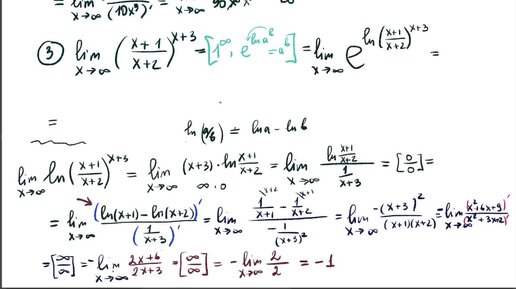 lim x→∞ (10x³)' x→∞ 90x⁸
③ lim x→∞ (x+1 / x+2)^(x+3) = [1^∞, e^(ln a^b) = a^b] = lim x→∞ e^(ln(x+1 / x+2)^(x+3)) =
=
ln(a/b) = ln a − ln b
lim x→∞ ln(x+1 / x+2)^(x+3) = lim x→∞ (x+3)·ln x+1 / x+2 = lim x→∞ ln x+1 / x+2 / 1 / x+3 = [0/0] =
∞·0
= lim x→∞ (ln(x+1) − ln(x+2))' / (1 / x+3)' = lim x→∞ 1^(\x+2) / x+1 − 1^(\x+1) / x+2 / −1 / (x+3)² = lim x→∞ −(x+3)² / (x+1)(x+2) = lim x→∞ (x²+6x+9)' / (x²+3x+2)'
= [∞/∞] = − lim x→∞ 2x+6 / 2x+3 = [∞/∞] = − lim x→∞ 2/2 = −1